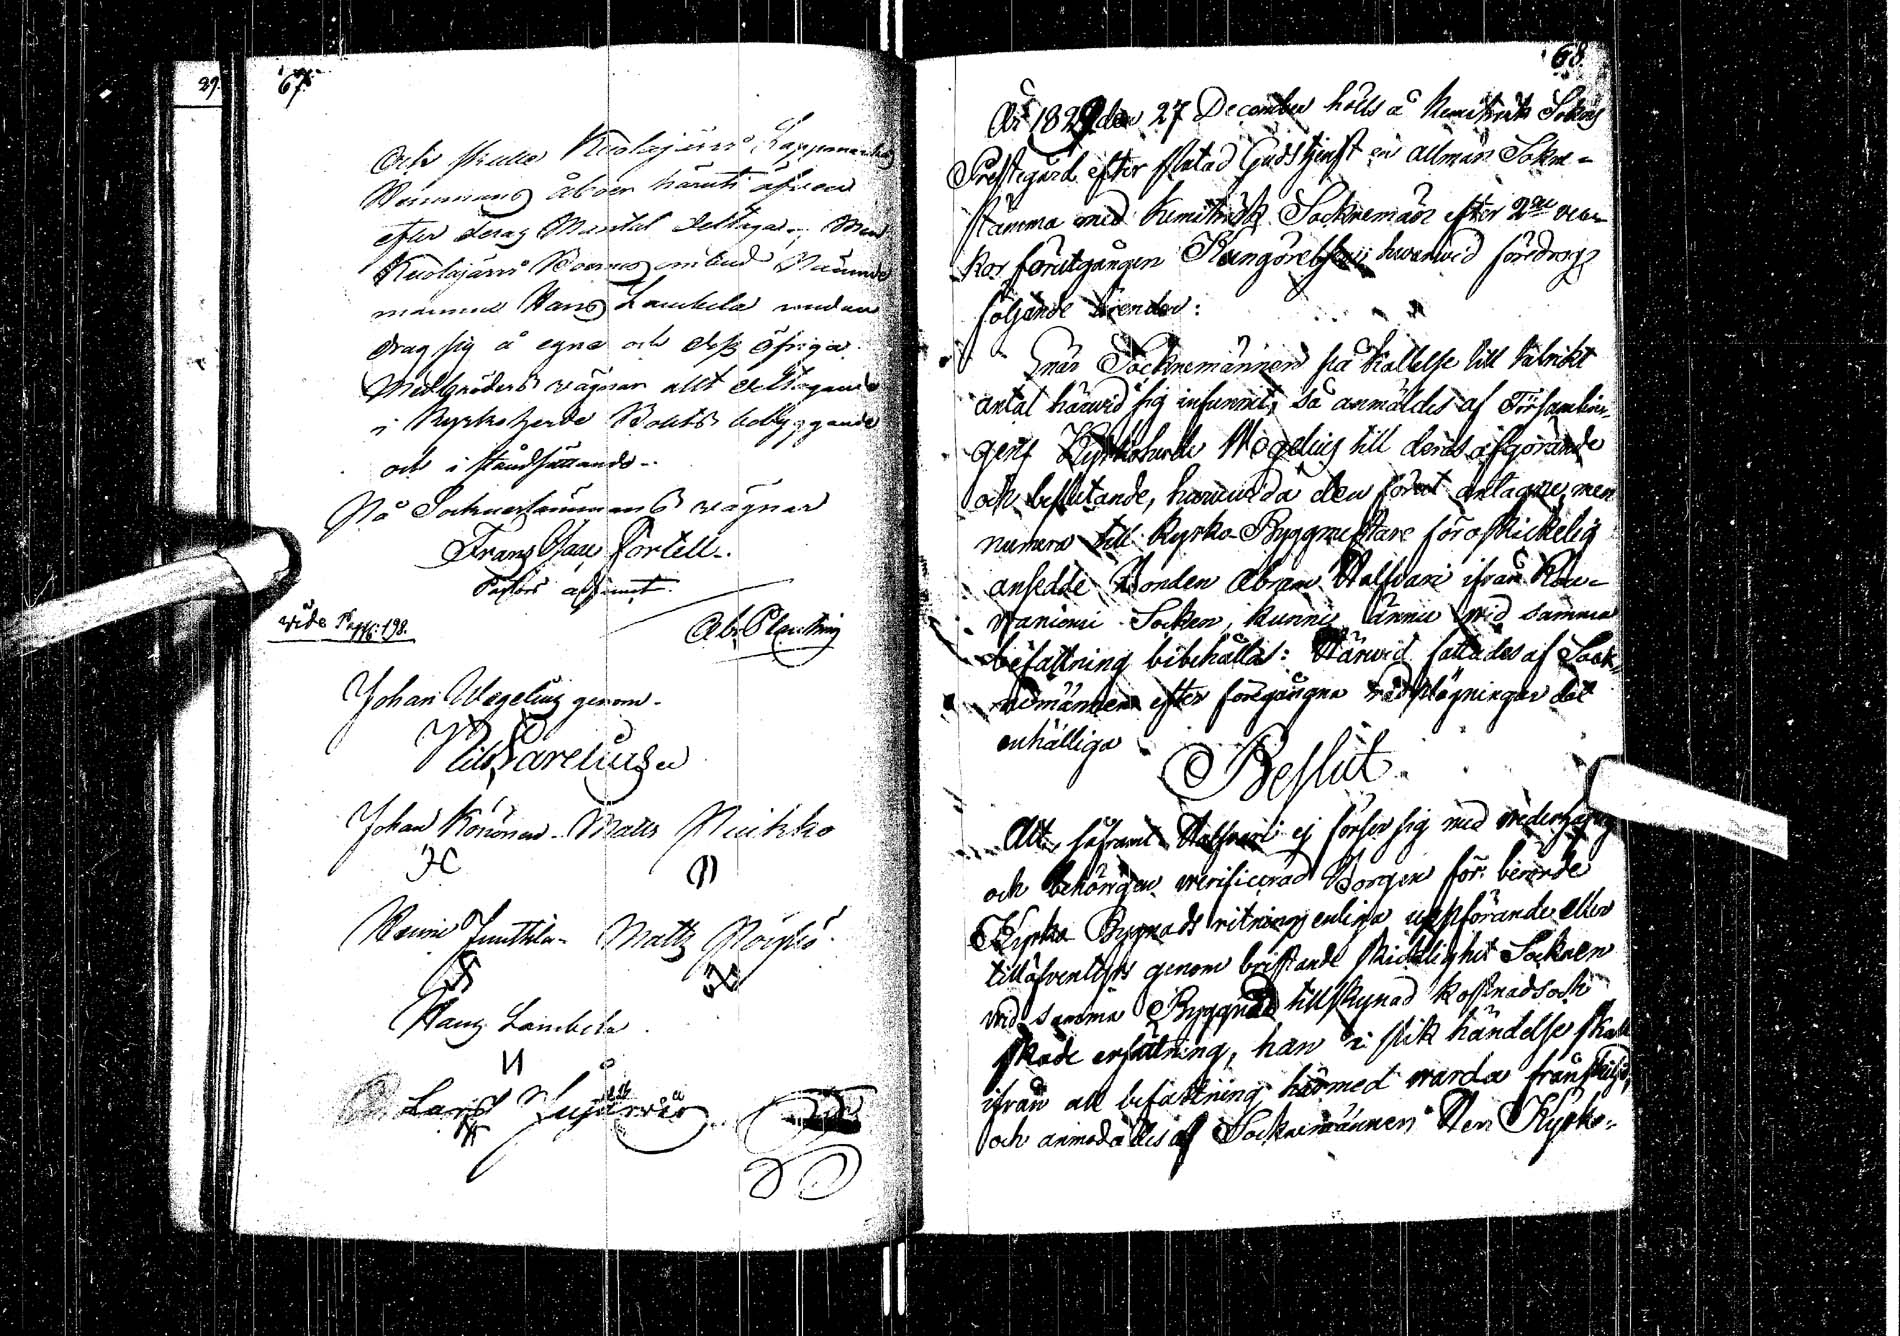 29.
67.
Och skulle Kuolajärvi Lappmarks
åboer häruti äfven
efter deras Mantal deltaga; Men
Kuolajärvi ombud
Hans Laukela undan
drag sig å egne och dess öfriga
Medbröders vägnar allt deltagande
i Kyrkoherde Bolets bebyggande
och i ståndsättande.
På Sockenstämmans vägnar
Frans Portell.
Pastors adjunct.
vide Pagg: 198.
Ab. Planting
Johan Wegelius genom
Nils Fareliuseu
Johan Könönen. Matts Pukko
Matts Pöykö
Hans Laukela
Lars Jujärvi
68.
År 1829 den 27 December hölls å Kemiträsk Sokns
Prestegård efter slutad Gudstjenst en allmän Sokne-
stämma med Kemiträsk Socknemän efter 2ne vec-
kor förutgången Kungörelse, hvarvid föredrogs
följande ärender:
Enär Socknemännen på kallelse till talrikt
antal härvid sig infunnit, så anmäldes af Församlin-
gens Kyrkoherde Wegelius till deras afgörande
och beslutande, huruvida den förut antagne, men
numera till Kyrko-Byggmästare föroskickelig
ansedde Bonden Abram Halsvari ifrån Rou-
vaniemi Socken, kunne ännu vid samma
befattning bibehållas: Härvid fattades af Sock-
nemännen efter föregångne rådplägningar det
enhälliga
Beslut.
Att, såframt Halsvari ej förser sig med vederhäftig
och behörigen verificerad Borgen för berörde
Kyrko Bygnads ritnings enliga uppförande eller
tilläfventyrs genom bristande skicklighet Socknen
vid samma Byggnad tillskynad kostnads och
skade ersättning, han i slik händelse skall
ifrån all befattning härmed varda frånskiljd,
och anmodades af Socknemännen Herr Kyrko-